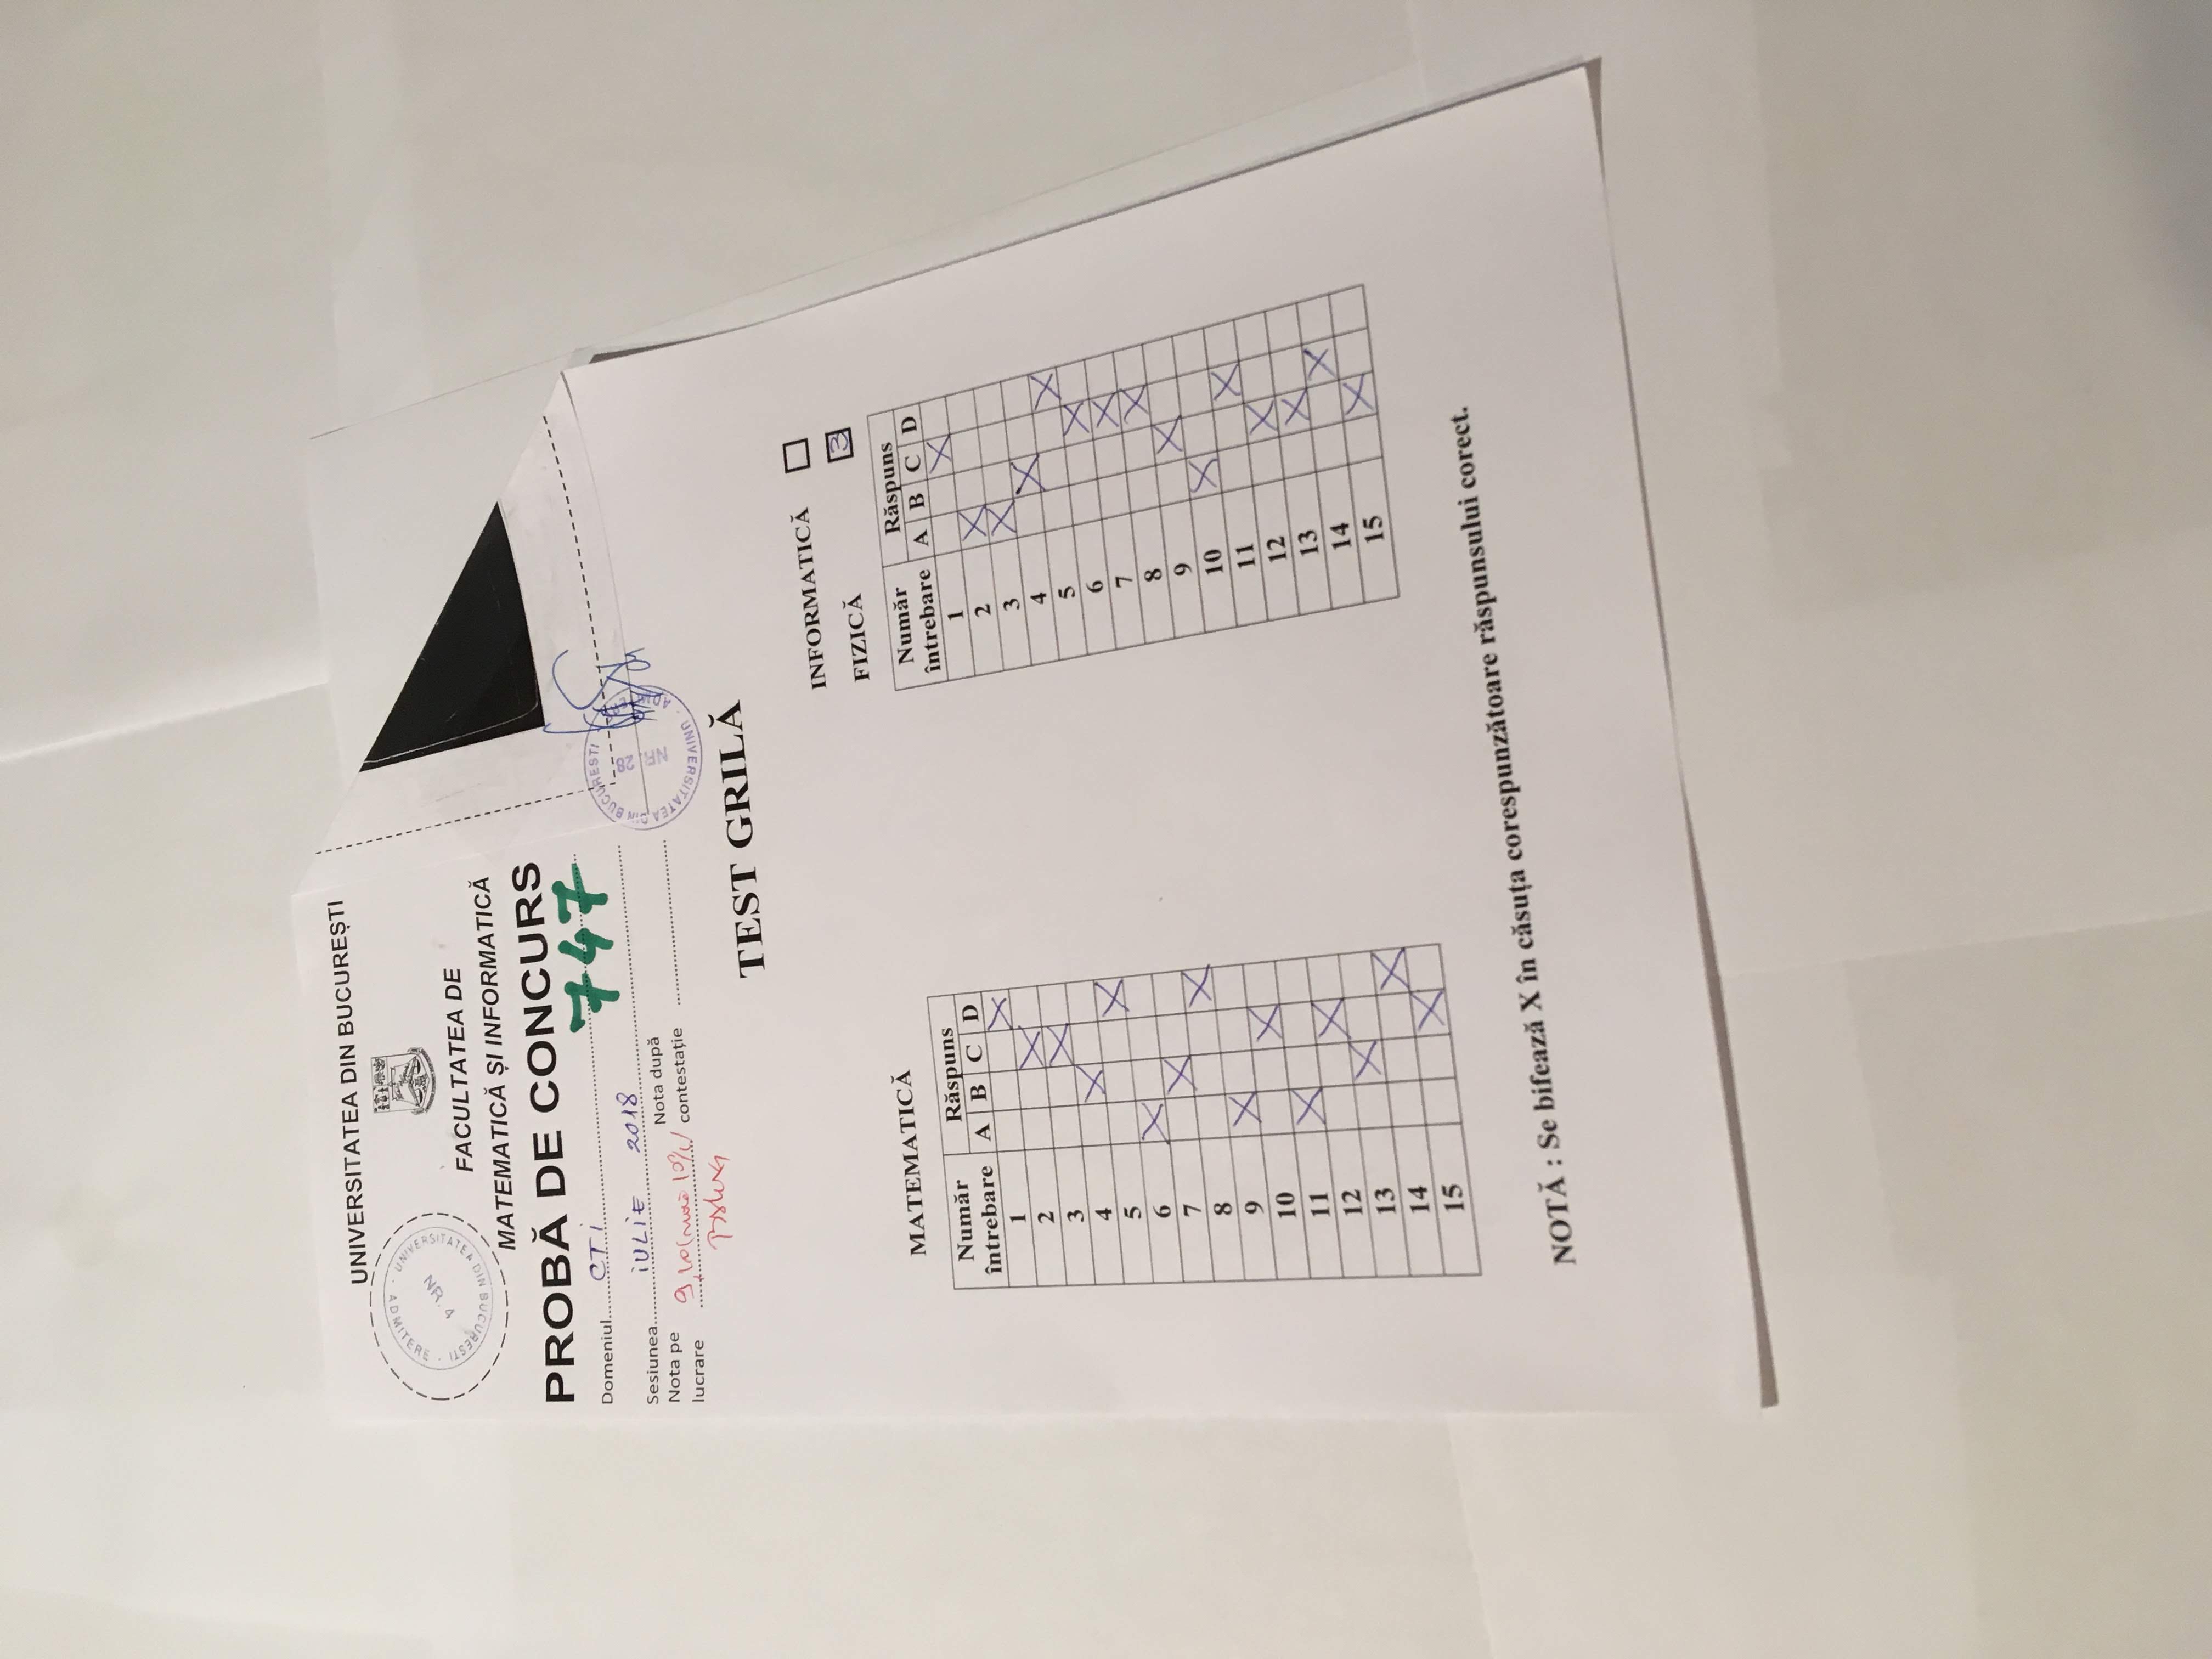 UNIVERSITATEA DIN BUCUREȘTI
UNIVERSITATEA DIN BUCURESTI · ADMITERE ·
NR. 4
FACULTATEA DE
MATEMATICĂ ȘI INFORMATICĂ
PROBĂ DE CONCURS
747
Domeniul CTI
Sesiunea iULiE 2018
Nota pe lucrare 9,10
Nota după contestație
UNIVERSITATEA DIN BUCURESTI
NR. 28
TEST GRILĂ
INFORMATICĂ
FIZICĂ 3
MATEMATICĂ
Număr întrebare Răspuns
A B C D
1 X
2 X
3 X
4 X
5 X
6 X
7 X
8 X
9 X
10 X
11 X
12 X
13 X
14 X
15 X
Număr întrebare Răspuns
A B C D
1 X
2 X
3 X
4 X
5 X
6 X
7 X
8 X
9 X
10 X
11 X
12 X
13 X
14 X
15 X
NOTĂ : Se bifează X în căsuța corespunzătoare răspunsului corect.